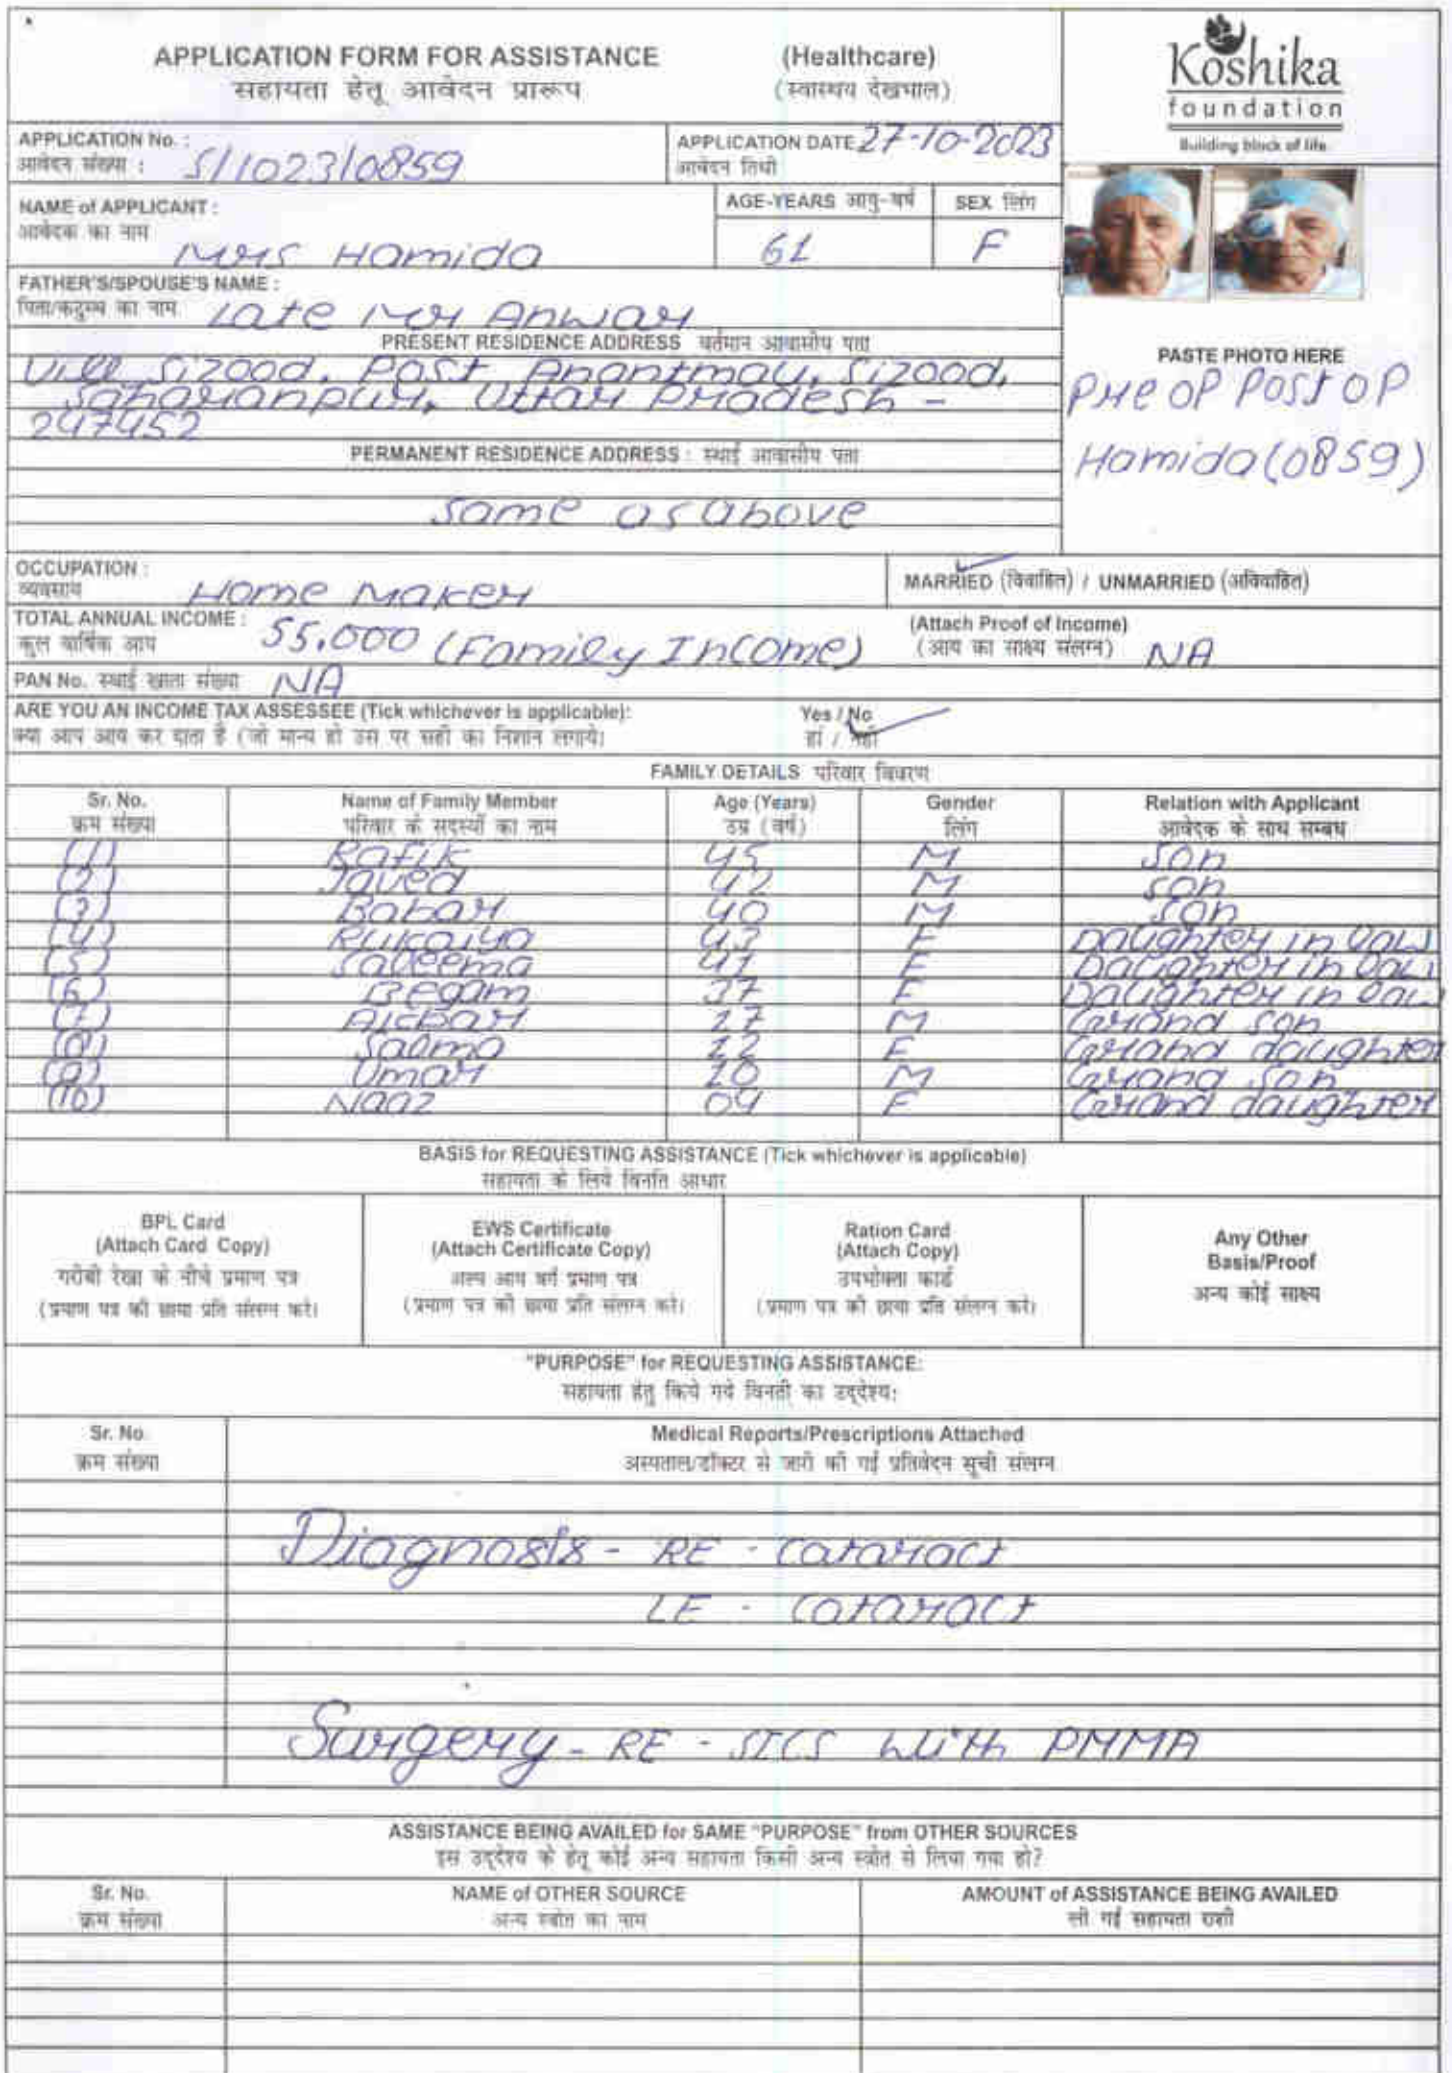 APPLICATION FORM FOR ASSISTANCE (Healthcare)
सहायता हेतू आवेदन प्रारूप (स्वास्थय देखभाल)
Koshika
foundation
Building block of life
APPLICATION No. : S/1023/0859
आवेदन संख्या :
APPLICATION DATE 27-10-2023
आवेदन तिथी
NAME of APPLICANT :
आवेदक का नाम Mrs Hamida
AGE-YEARS आयु-वर्ष 61
SEX लिंग F
FATHER'S/SPOUSE'S NAME :
पिता/कटुम्ब का नाम Late Mr Anwar
PRESENT RESIDENCE ADDRESS वर्तमान आवासीय पता
Vill Sizood, Post Anantmay, Sizood,
Saharanpur, Uttar Pradesh -
247452
PERMANENT RESIDENCE ADDRESS : स्थाई आवासीय पता
same as above
PASTE PHOTO HERE
Pre OP Post OP
Hamida (0859)
OCCUPATION :
व्यवसाय Home Maker
MARRIED (विवाहित) / UNMARRIED (अविवाहित)
TOTAL ANNUAL INCOME : 55,000 (Family Income)
कुल वार्षिक आय
(Attach Proof of Income)
(आय का साक्ष्य संलग्न) NA
PAN No. स्थाई खाता संख्या NA
ARE YOU AN INCOME TAX ASSESSEE (Tick whichever is applicable): Yes / No
क्या आप आय कर दाता है (जो मान्य हो उस पर सही का निशान लगाये। हां / नहीं
FAMILY DETAILS परिवार विवरण
Sr. No. Name of Family Member Age (Years) Gender Relation with Applicant
क्रम संख्या परिवार के सदस्यों का नाम उम्र (वर्ष) लिंग आवेदक के साथ सम्बध
(1) Rafik 45 M Son
(2) Javed 42 M Son
(3) Babar 40 M Son
(4) Rukaiya 43 F Daughter in law
(5) Saleema 41 F Daughter in law
(6) Begam 37 F Daughter in law
(7) Akbar 17 M Grand son
(8) Salma 12 F Grand daughter
(9) Umar 10 M Grand son
(10) Naaz 09 F Grand daughter
BASIS for REQUESTING ASSISTANCE (Tick whichever is applicable)
सहायता के लिये विनति आधार
BPL Card
(Attach Card Copy)
गरीबी रेखा के नीचे प्रमाण पत्र
(प्रमाण पत्र की छाया प्रति संलग्न करे।
EWS Certificate
(Attach Certificate Copy)
अल्प आय वर्ग प्रमाण पत्र
(प्रमाण पत्र की छाया प्रति संलग्न करे।
Ration Card
(Attach Copy)
उपभोक्ता कार्ड
(प्रमाण पत्र की छाया प्रति संलग्न करे।
Any Other
Basis/Proof
अन्य कोई साक्ष्य
"PURPOSE" for REQUESTING ASSISTANCE:
सहायता हेतु किये गये विनती का उद्देश्य:
Sr. No. Medical Reports/Prescriptions Attached
क्रम संख्या अस्पताल/डॉक्टर से जारी की गई प्रतिवेदन सूची संलग्न
Diagnosis - RE - Cataract
LE - Cataract
Surgery - RE - SICS with PMMA
ASSISTANCE BEING AVAILED for SAME "PURPOSE" from OTHER SOURCES
इस उद्देश्य के हेतू कोई अन्य सहायता किसी अन्य स्त्रोत से लिया गया हो?
Sr. No. NAME of OTHER SOURCE AMOUNT of ASSISTANCE BEING AVAILED
क्रम संख्या अन्य स्त्रोत का नाम ली गई सहायता राशी